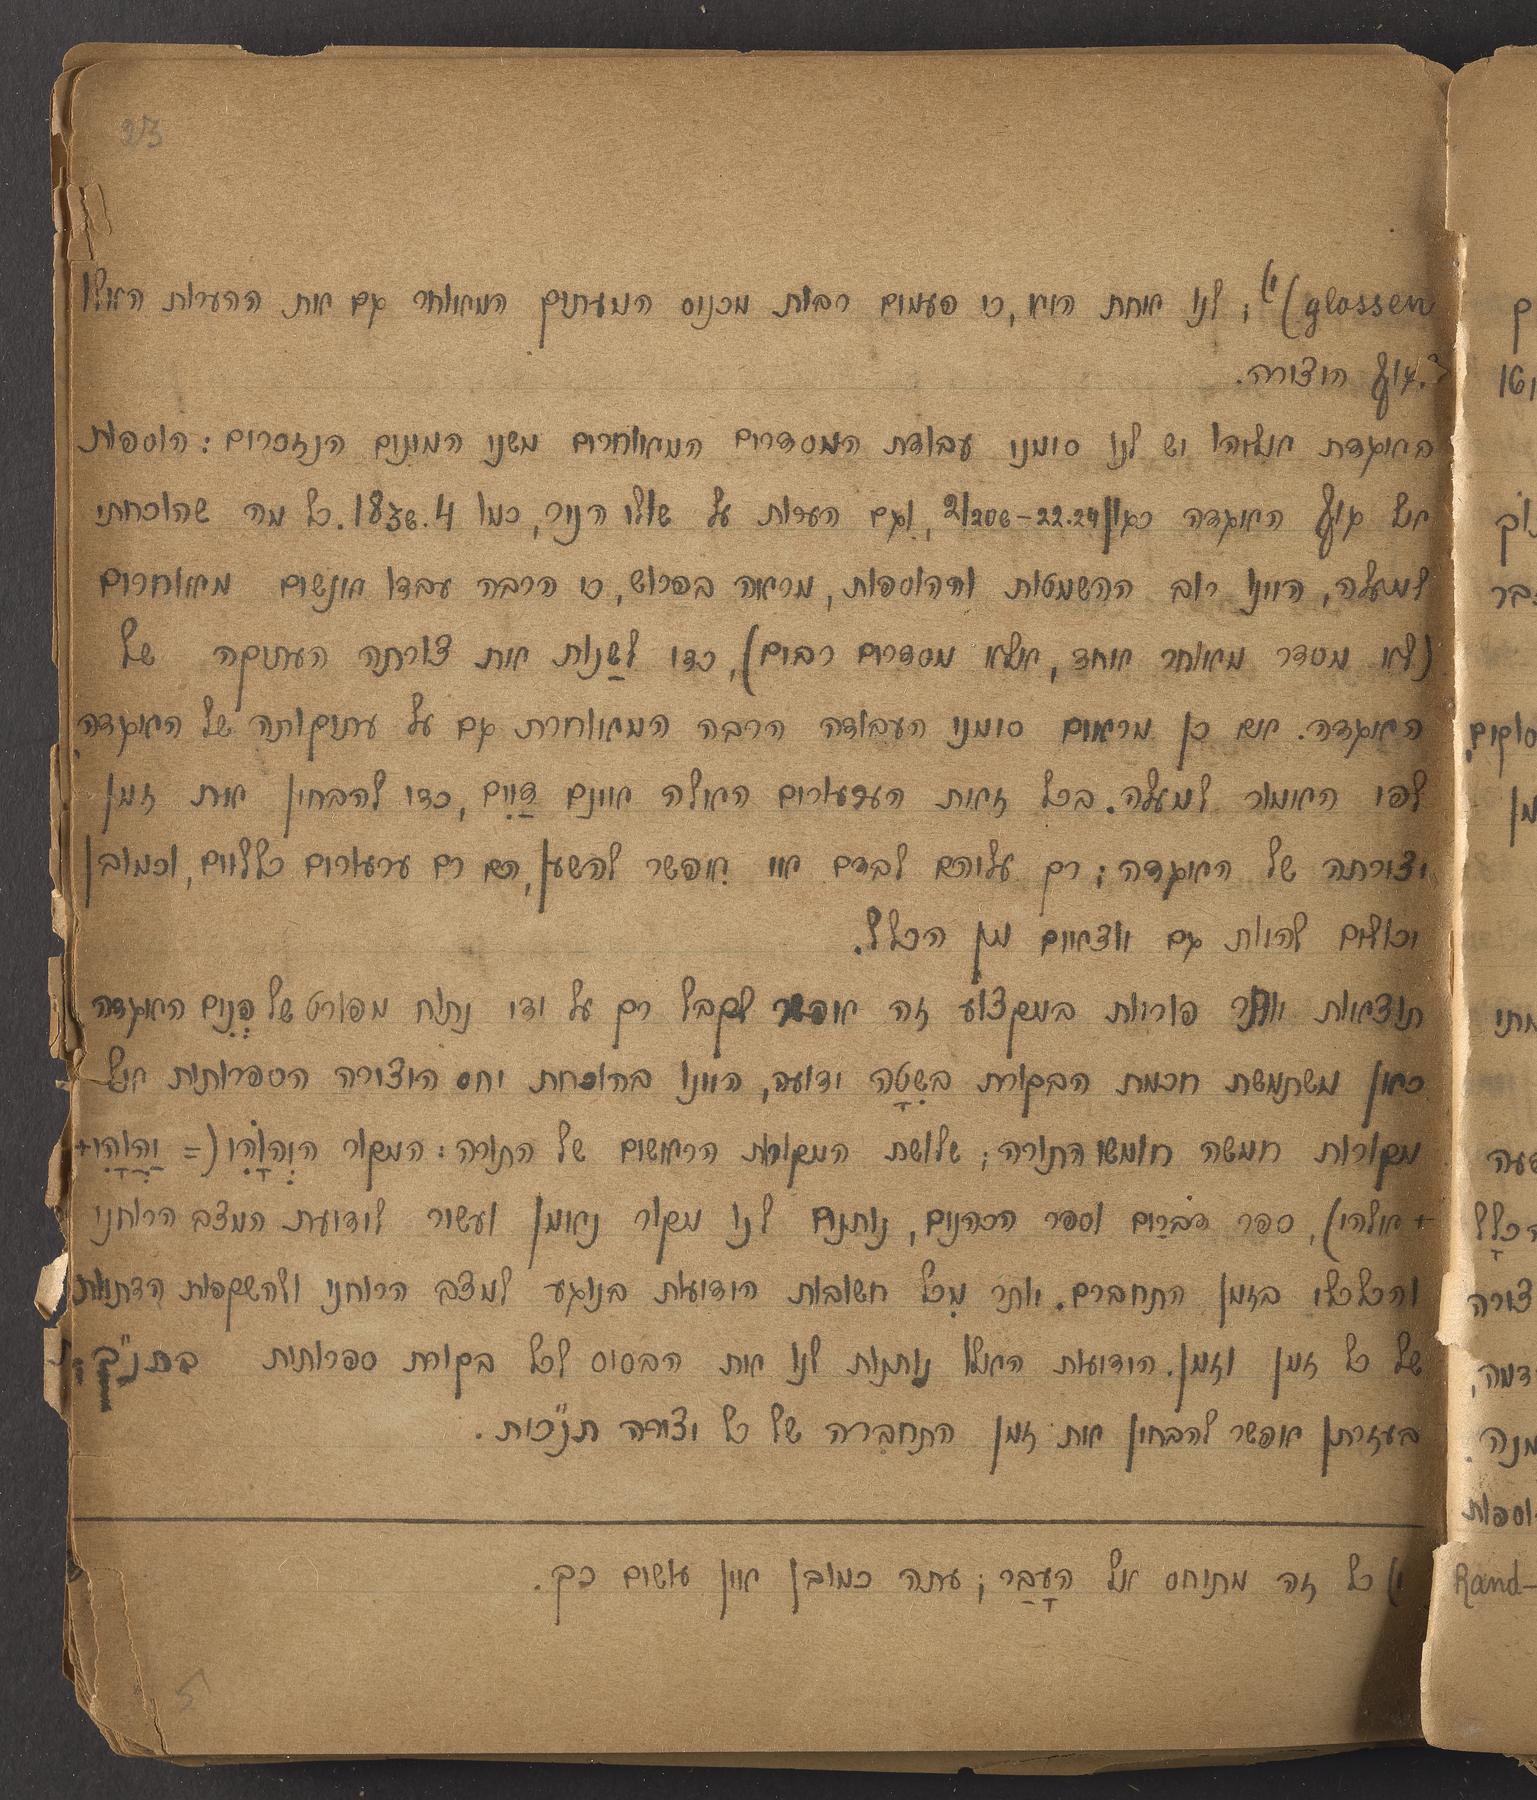 23
glossen)¹⁾; לנו אחת היא, כי פעמים רבות מכניס המעתיק המאוחר גם את ההערות האלו
גוף היצירה.
באגדת אליהו יש לנו סימני עבודת המסדרים המאוחרים משני המינים הנזכרים: הוספות
אל גוף האגדה כגון, וגם הערות על שולי הניר, כמו 4. כל מה שהוכחתי
למעלה, היינו רוב ההשמטות וההוספות, מראה בפרוש, כי הרבה עבדו אנשים מאוחרים
(לא מסדר מאוחר אחד, אלא מסדרים רבים), כדי לשַנות את צורתה העתיקה של
האגדה. אם כן מראים סימני העבודה הרבה המאוחרת גם על עתיקותה של האגדה
לפי האמור למעלה. בכל זאת הערעורים האלה אינם דַיִים, כדי להבחין את זמן
יצירתה של האגדה; רק עליהם לבדם אי אפשר להשען, הם רק ערעורים כלליים, וכמובן
יכולים להיות גם יוצאים מן הכלל.
תוצאות יותר פוריות במקצוע זה אפשר לקבל רק על ידי נתוח מפורט של פְּנִים האגדה
כאן משתמשת חכמת הבקורת בשִטָה ידועה, היינו בהוכחת יחס היצירה הספרותית אל
מקורות חמשה חומשי התורה; שלושת המקורות הראשים של התורה: המקור היְהוָֹהִי (= יַהְוָהִי+
+ אלהי), ספר דברַים וספר הכהנים, נותנים לנו מקור נאמן ועשיר לידיעת המצב הרוחני
והכלכלי בזמן התחברם. יותר מִכל חשובות הידיעות בנוגע למצב הרוחני ולהשקפות הדתיות
של כל זמן וזמן. הידיעות האלו נותנות לנו את הבסיס לכל בקורת ספרותית בתנ"ך
בעזרתן אפשר להבחין את זמן התחברה של כל יצירה תנ"כית.
¹) כל זה מתיחס אל העָבַר; עתה כמובן אין עושים כך.
5